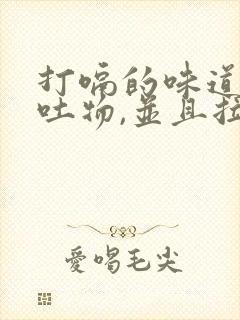 打嗝的味道
吐物,並且拉
愛喝毛尖